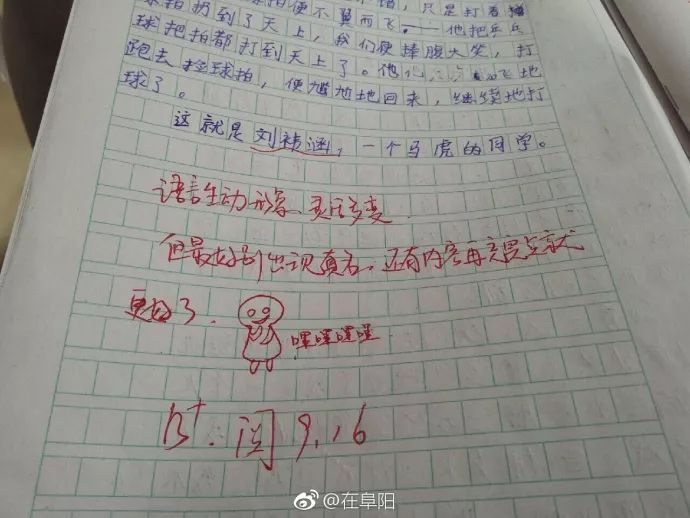 球拍便不翼而飞.——他把乒乓
球拍扔到了天上,我们便捧腹大笑,打
球把拍都打到天上了。他
跑去捡球拍,便尴尬地回来,继续地打
球了。
这就是刘祎涵,一个马虎的同学。
语言生动形象、灵活多变
但最好别出现真名、还有内容再充实点就
更好了.
嘿嘿嘿嘿
B⁺. 阅 9.16
@在阜阳